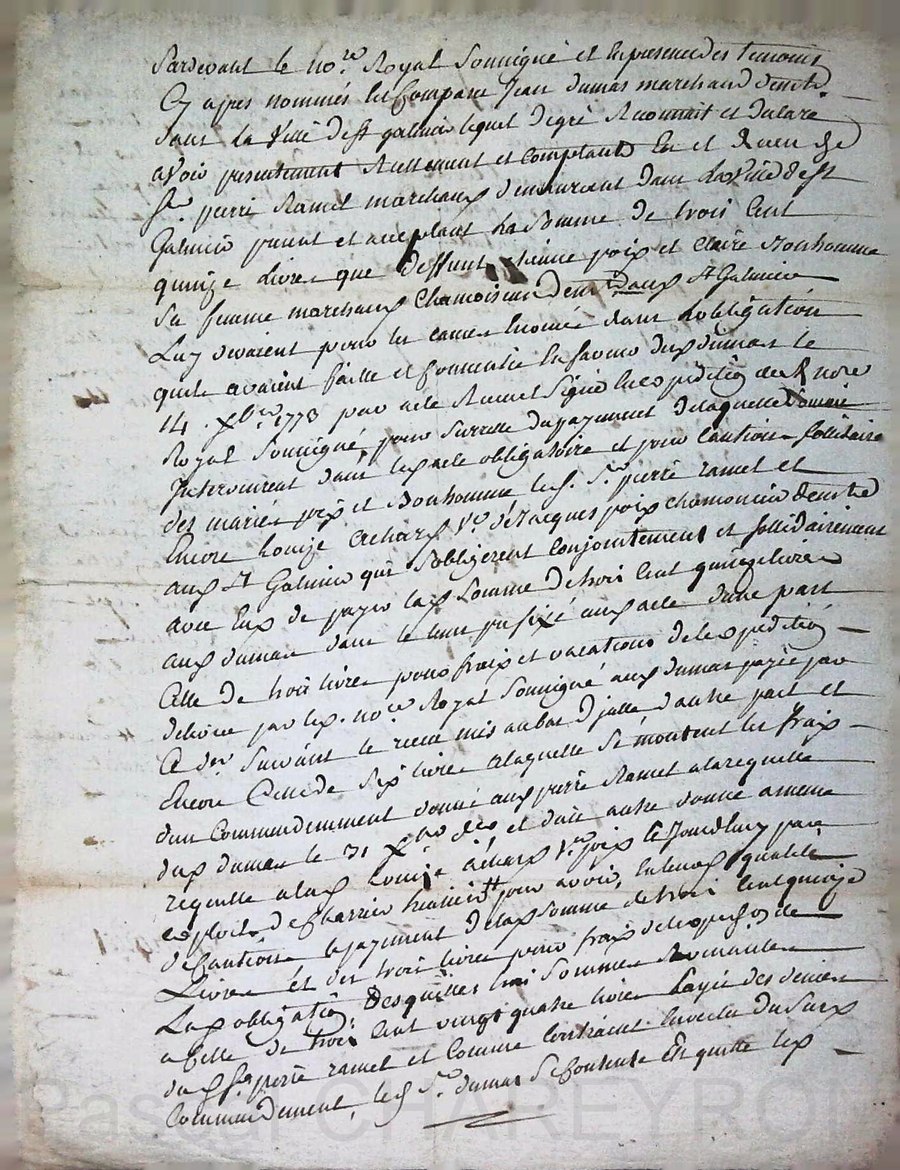 Pardevant le no.re Royal Soussigné et en presence des temoins
Cy apres nommés est Comparu Jean dumas marchand demt.
dans la Ville de St galmier lequel de gré Reconnait et declare
avoir presentement Reellement et Comptant Eu et Receu de
Sr. pierre Ramel marchand demeurant dans la Ville de St
Galmier present et acceptant la Somme de trois Cent
quinze Livres que deffunt etienne poix et Claire Bonhomme
Sa femme marchand Chamoiseur demt. dans St Galmier
Luy devaient pour les causes Enoncé dans Lobligation
quils avaient faitte et Consentie En faveur dud dumas le
14. Xbre. 1773 par acte Receu et Signé En Expedition dud. nore
Royal Soussigné, pour Surette du payement de laquelle Somme
Intervinrent dans led acte obligatoire et pour Cautions Sollidaires
des mariés poix et Bonhomme led. Sr. pierre ramel et
Encore Louize Achard Ve. de Jacques poix chamoiseur demt.
aud St Galmier qui Sobligerent Conjointement et Sollidairement
avec Eux de payer lad Somme de trois Cent quinze livres
aud dumas dans le tems prefixé aud acte dune part
Celle de trois livres pour frais et vacations de lexpedition
delivrée par led. no.re Royal Soussigné aud dumas payée par
Ce der. Suivant le receu mis au bas d'jcelle dautre part et
Encore Celle de Six livres a laquelle Se montent les frais
dun Commandemment donné aud pierre Ramel a la requette
dud dumas le 31 Xbre der. et dun autre donné a meme
requette a lad Louize Achard Ve. poix le Jourdhuy par
exploits de Charrier huissier pour avoir, En leurs qualité
de Cautions le payement de lad Somme de trois Cent quinze
Livres et des trois livres pour frais de lexpedition de
Lad obligation, Desquelles trois Sommes Revenantes
a Celle de trois Cent vingt quatre livres payée des deniers
dud Sr. pierre ramel et Comme Contraint En vertu du Susd
Commandement, led Sr. dumas Se Contente En quitte led
Pascal CHAREYRON